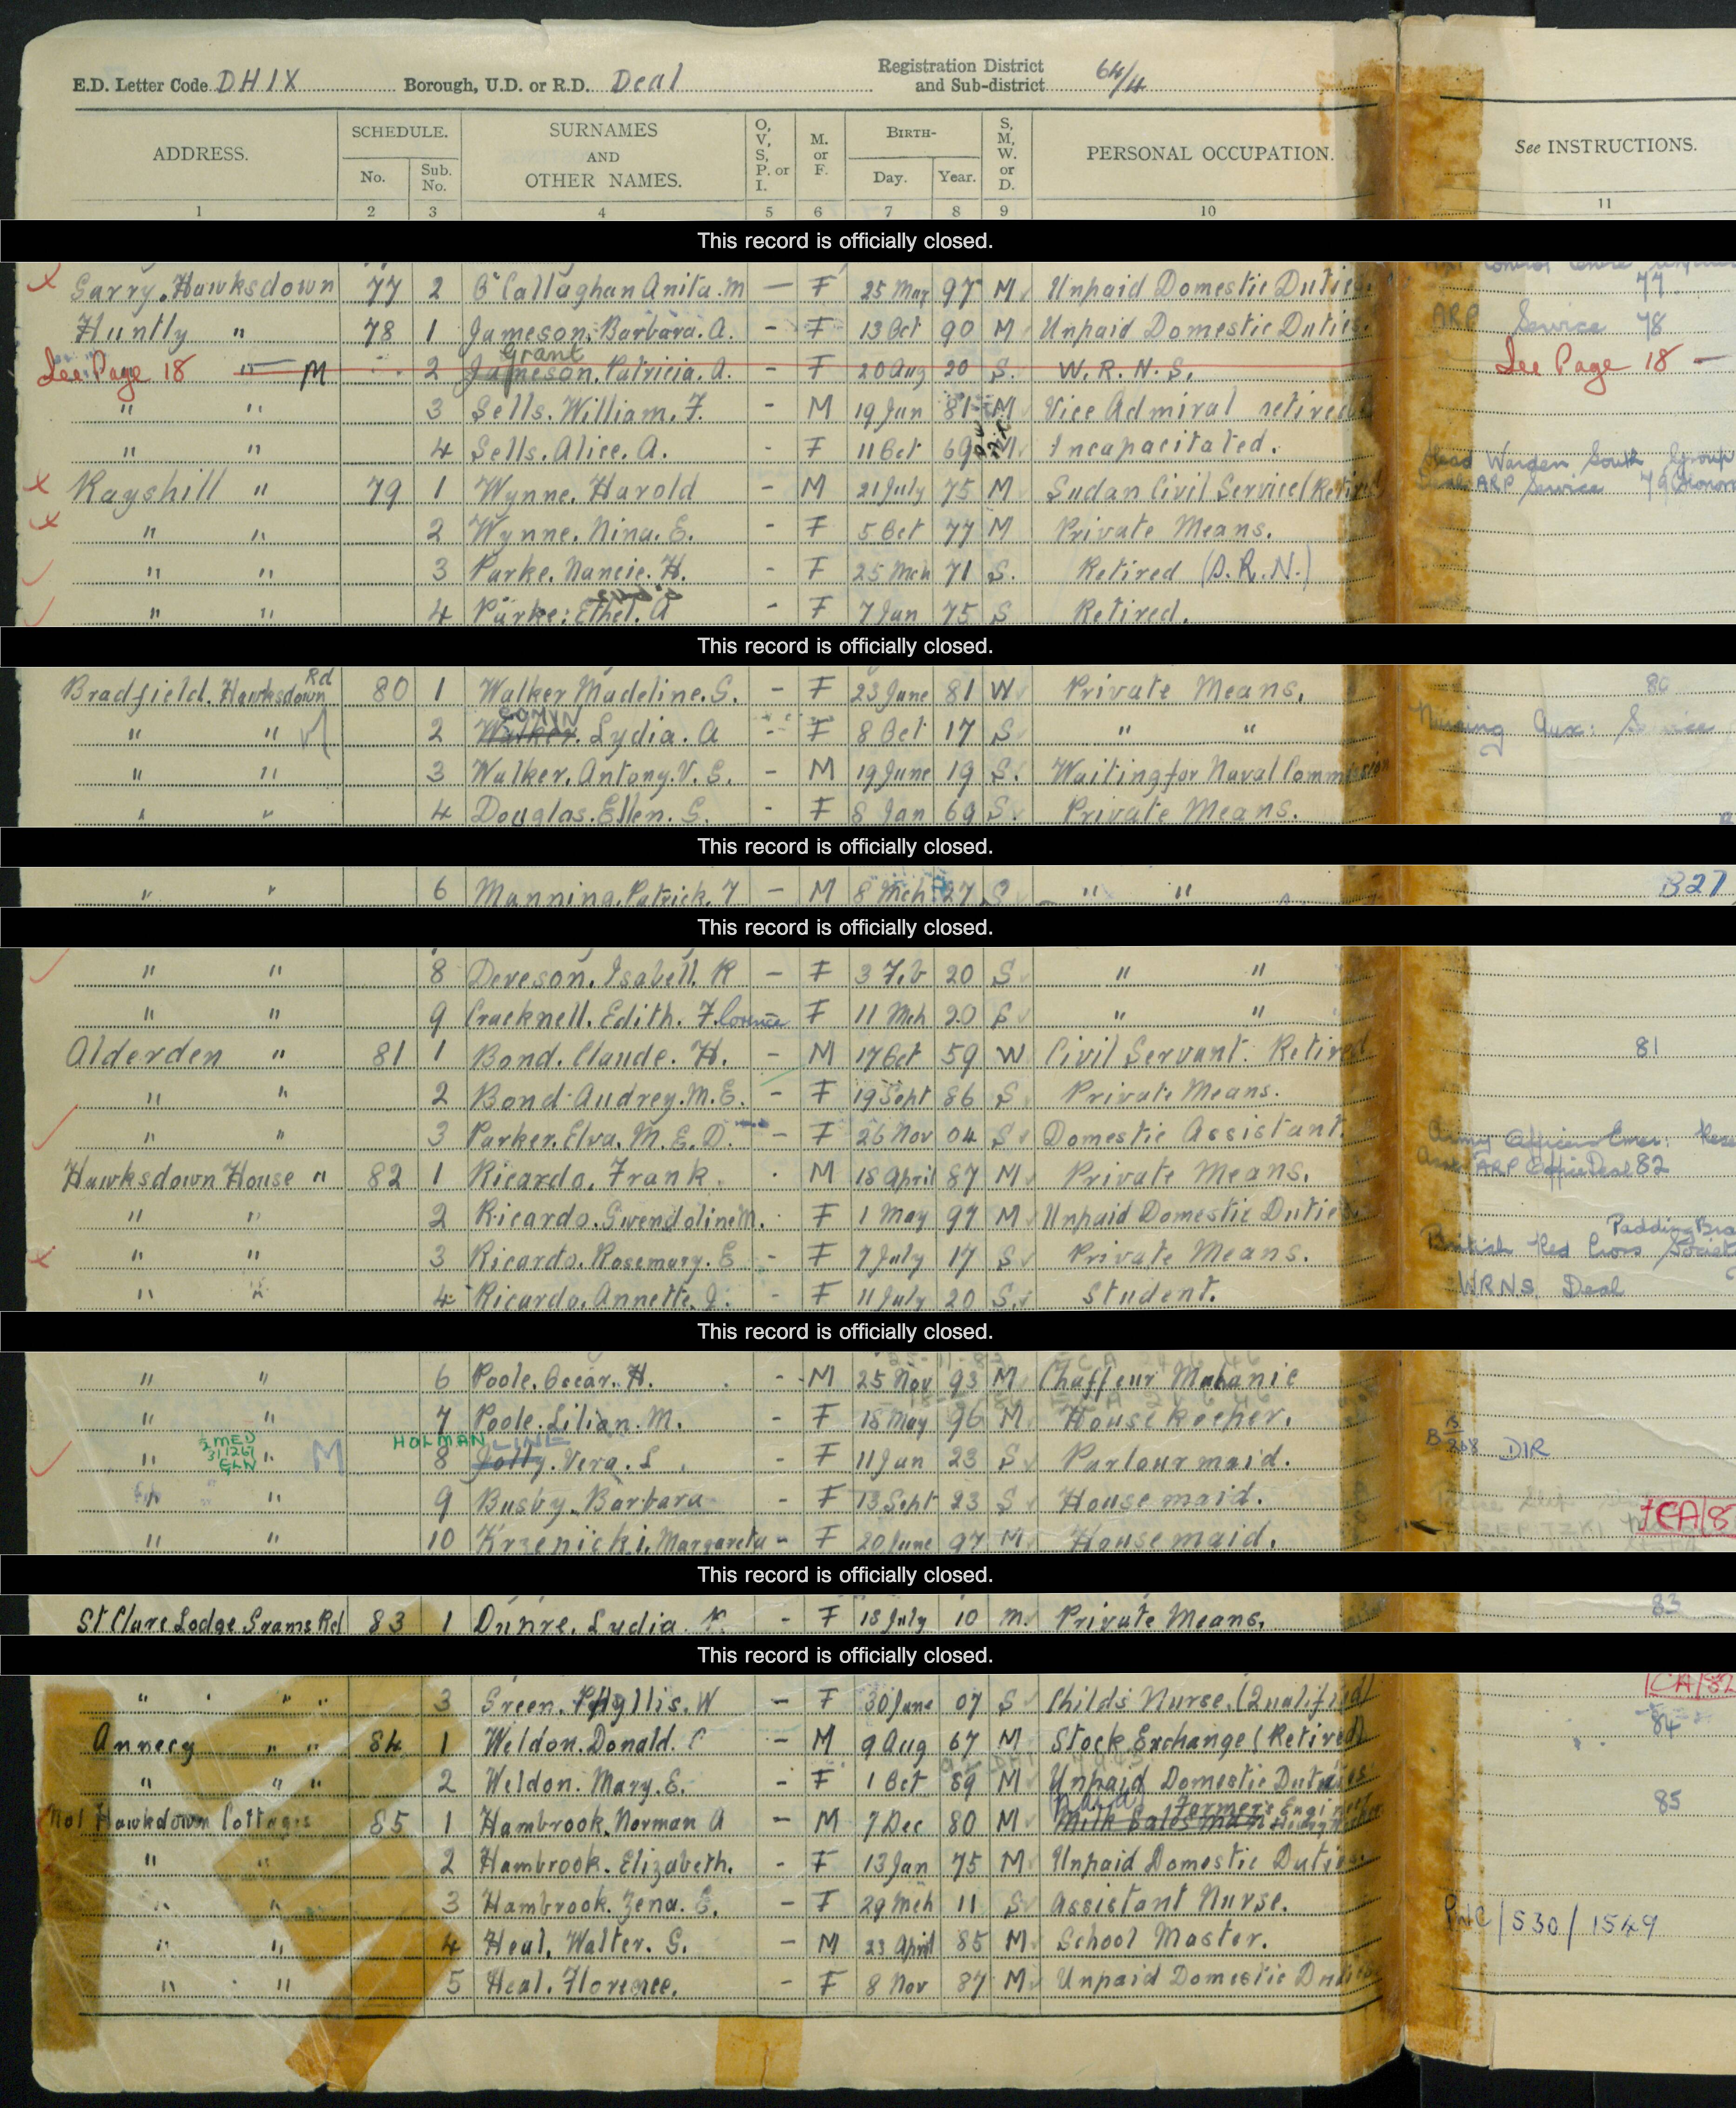 E.D. Letter Code DHIX Borough, U.D. or R.D. Deal Registration District and Sub-district 64/4
ADDRESS. SCHEDULE. No. Sub. No. SURNAMES AND OTHER NAMES. O, V, S, P. or I. M. or F. BIRTH- Day. Year. S, M, W. or D. PERSONAL OCCUPATION. See INSTRUCTIONS.
1 2 3 4 5 6 7 8 9 10 11
This record is officially closed.
Garry. Hawksdown 77 2 O'Callaghan Anita. M — F 25 May 97 M Unpaid Domestic Duties. 77
Huntly " 78 1 Jameson. Barbara. A. - F 13 Oct 90 M Unpaid Domestic Duties. ARP Service 78
Grant
See Page 18 " M 2 Jameson. Patricia. A. - F 20 Aug 20 S. W.R.N.S. See Page 18 —
" " 3 Sells. William. F. - M 19 Jun 81 M Vice Admiral retired
" " 4 Sells. Alice. A. - F 11 Oct 69 M Incapacitated.
Head Warden South Group
Rayshill " 79 1 Wynne. Harold - M 21 July 75 M Sudan Civil Service (Retired ARP Service 79
" " 2 Wynne. Nina. E. - F 5 Oct 77 M Private Means.
" " 3 Parke. Nancie. H. - F 25 Mch 71 S. Retired (S.R.N.)
" " 4 Parke: Ethel. A - F 7 Jan 75 S Retired.
This record is officially closed.
Bradfield. Hawksdown Rd 80 1 Walker Madeline. S. - F 23 June 81 W Private Means. 80
COMIN
" " 2 Walker. Lydia. A - F 8 Oct 17 S " " Nursing Aux: Service
" " 3 Walker. Antony. V. S. - M 19 June 19 S. Waiting for Naval Commission
" " 4 Douglas. Ellen. G. - F 8 Jan 69 S. Private Means.
This record is officially closed.
" " 6 Manning. Patrick. T - M 8 Mch 27 S " " B27
This record is officially closed.
" " 8 Deveson. Isabell. R - F 3 Feb 20 S " "
" " 9 Cracknell. Edith. Florence F 11 Mch 20 S " "
Alderden " 81 1 Bond. Claude. H. - M 17 Oct 59 W Civil Servant. Retired 81
" " 2 Bond. Audrey. M. E. - F 19 Sept 86 S Private Means.
" " 3 Parker. Elva. M. E. D. - F 26 Nov 04 S Domestic Assistant. Army Officers Emer: Rese
Hawksdown House " 82 1 Ricardo. Frank. M 18 April 87 M Private Means. ARP Office Deal 82
" " 2 Ricardo. Gwendoline M. F 1 May 97 M Unpaid Domestic Duties.
" " 3 Ricardo. Rosemary. E - F 7 July 17 S Private Means. British Red Cross Societ
" " 4 Ricardo. Annette. J. - F 11 July 20 S. Student. WRNS. Deal
This record is officially closed.
" " 6 Poole. Oscar. H. - M 25 Nov 93 M Chaffeur Mechanic
" " 7 Poole. Lilian. M. - F 18 May 96 M Housekeeper.
HOLMAN
" " M 8 Jolly. Vera. L. - F 11 Jan 23 S Parlourmaid. DIR
" " 9 Busby. Barbara - F 13 Sept 23 S House maid.
" " 10 Krzenicki. Margareta - F 20 June 97 M House maid. CA/8
This record is officially closed.
St Clare Lodge Grams Rd 83 1 Dunre. Lydia - F 18 July 10 M. Private Means. 83
This record is officially closed.
" " " 3 Green. Phyllis. W - F 30 June 07 S Childs Nurse. (Qualified)
Annecy " " 84 1 Weldon. Donald. C - M 9 Aug 67 M Stock Exchange (Retired) 84
" " " 2 Weldon. Mary. E. - F 1 Oct 89 M Unpaid Domestic Duties
No1 Hawkdown Cottages 85 1 Hambrook. Norman A - M 7 Dec 80 M Milk Salesman 85
" " 2 Hambrook. Elizabeth. - F 13 Jan 75 M Unpaid Domestic Duties.
" " 3 Hambrook. Zena. E. - F 29 Mch 11 S Assistant Nurse.
" " 4 Heal. Walter. G. - M 23 April 85 M School Master. /530/1549
" " 5 Heal. Florence. - F 8 Nov 87 M Unpaid Domestic Duties